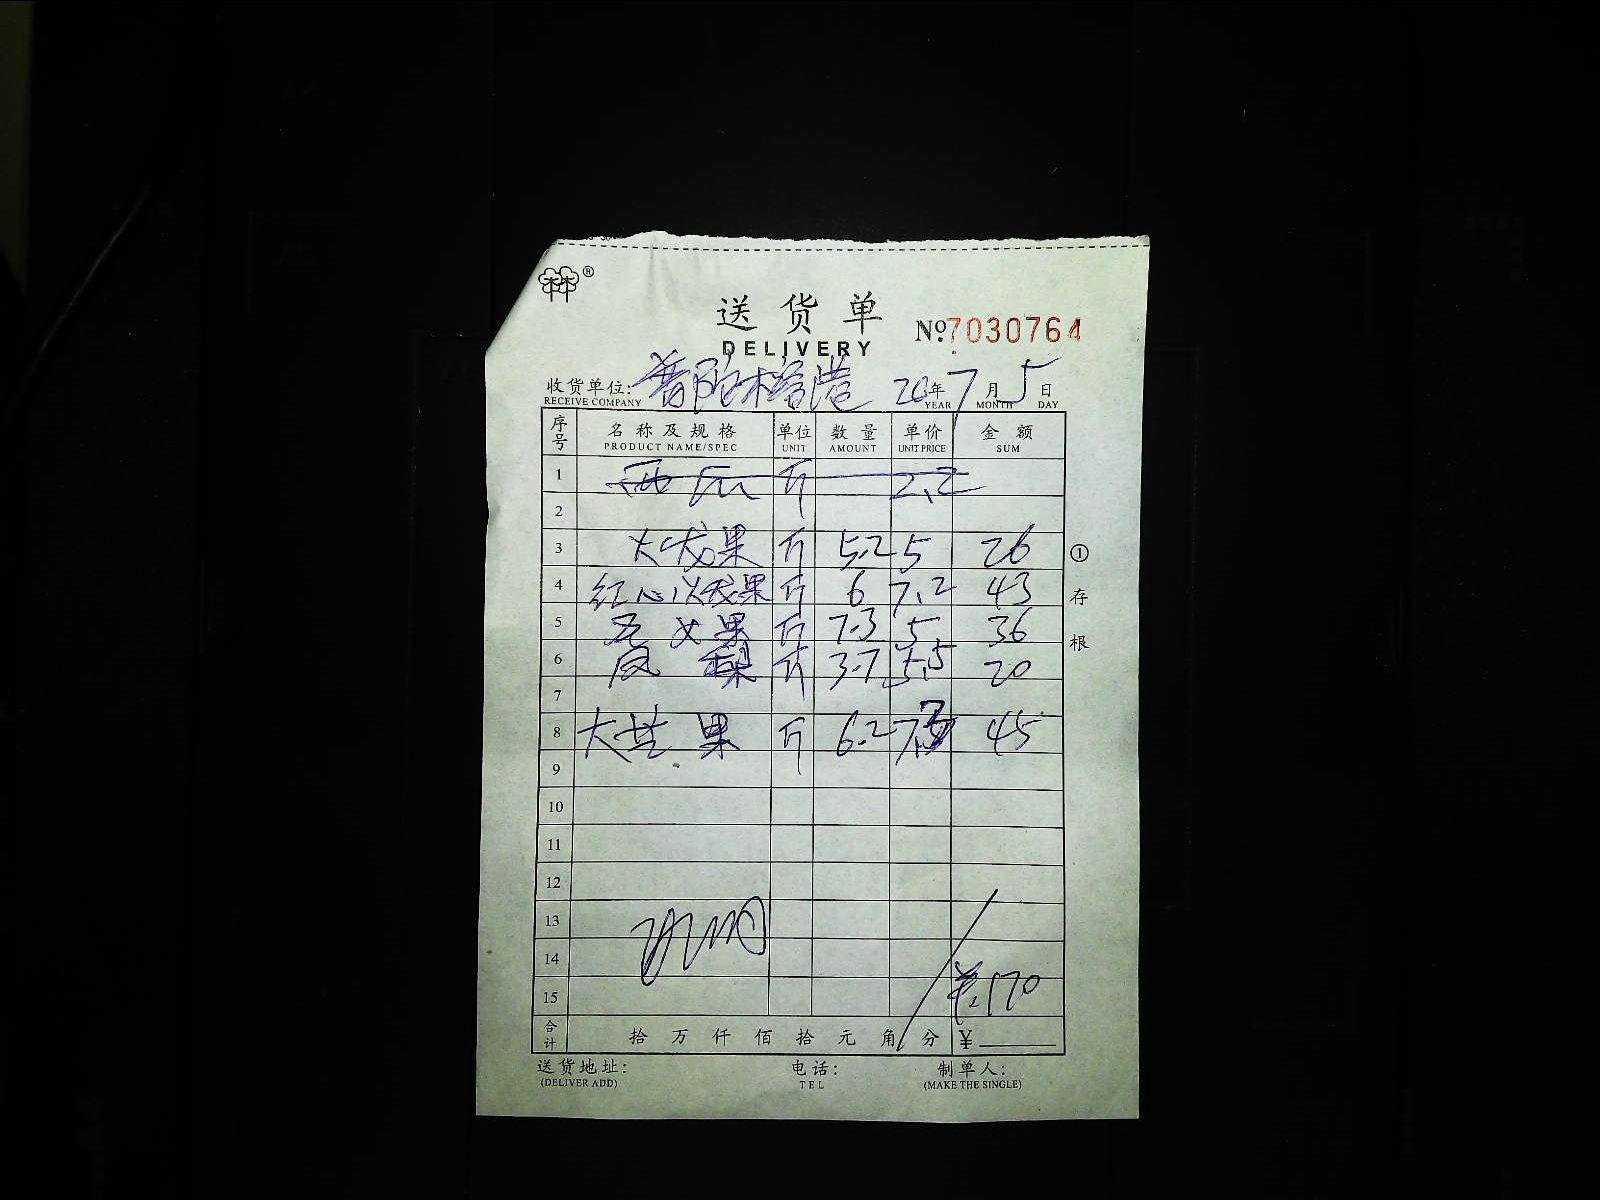 林®
送货单
DELIVERY
№7030764
收货单位: 普陀 港 20年7月5日
RECEIVE COMPANY YEAR MONTH DAY
序号 名称及规格 单位 数量 单价 金额
PRODUCT NAME/SPEC UNIT AMOUNT UNIT PRICE SUM
1 西瓜 斤 2.2
2
3 火龙果 斤 5.2 5 26
4 红心火龙果 斤 6 7.2 43
5 果 斤 7.3 5 36
6 凤梨 斤 3.7 5.5 20
7
8 大芒果 斤 6.2 7.3 45
9
10
11
12
13
14
15 ¥170
合计 拾万仟佰拾元角分 ¥
送货地址: 电话: 制单人:
(DELIVER ADD) TEL (MAKE THE SINGLE)
①存根